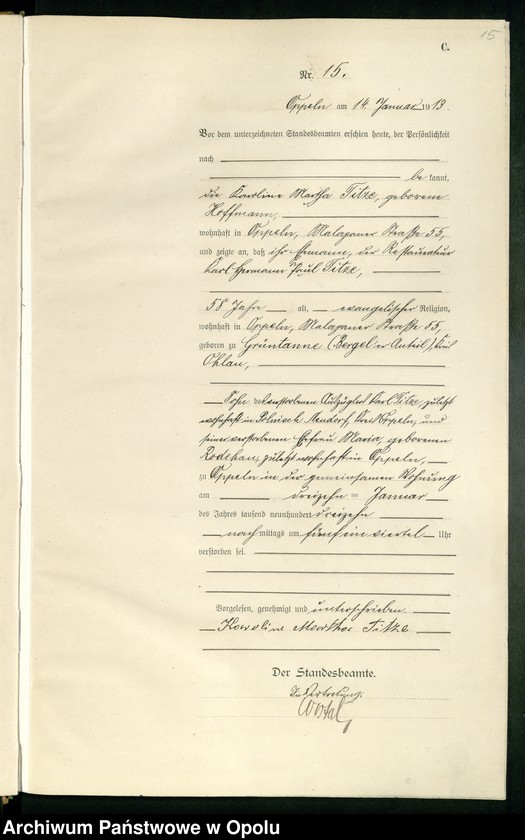 15
C.
Nr. 15.
Oppeln am 14. Januar 1913.
Vor dem unterzeichneten Standesbeamten erschien heute, der Persönlichkeit
nach
be kannt,
die Karoline Martha Titze, geborene
Hoffmann,
wohnhaft in Oppeln, Malapaner Straße 55,
und zeigte an, daß ihr Ehemann, der Restaurateur
Karl Hermann Paul Titze,
58 Jahre alt, evangelischer Religion,
wohnhaft in Oppeln, Malapaner Straße 55,
geboren zu Grüntanne (Bergel'er Anteil), Kreis
Ohlau,
Sohn des verstorbenen Auszüglers Karl Titze, zuletzt
wohnhaft in Polnisch Neudorf, Kreis Oppeln, und
seiner verstorbenen Ehefrau Maria, geborenen
zuletzt wohnhaft in Oppeln,
zu Oppeln in der gemeinsamen Wohnung
am dreizehn = Januar
des Jahres tausend neunhundert dreizehn
nach mittags um fünfeinviertel Uhr
verstorben sei.
Vorgelesen, genehmigt und unterschrieben
Karoline Martha Titze
Der Standesbeamte.
In Vertretung:
Archiwum Państwowe w Opolu